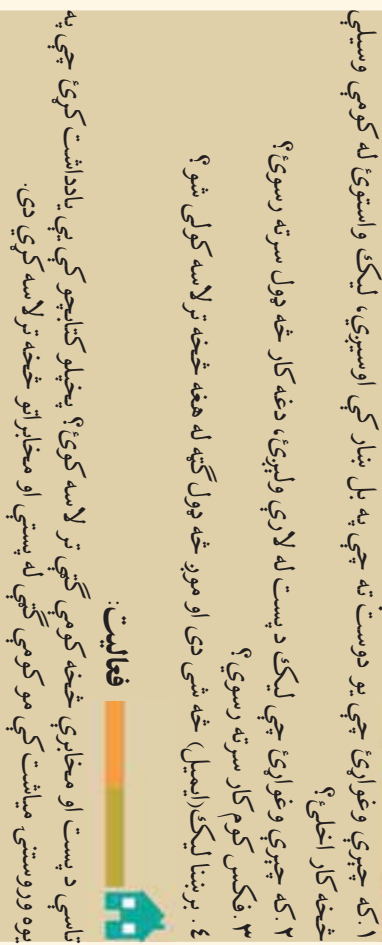 ۱.که چېرې وغواړئ چې يو دوست ته چې په بل ښار کې اوسېږي، ليک واستوئ له کومې وسيلې
څخه کار اخلئ؟
۲.که چېرې وغواړئ چې ليک د پست له لارې ولېږئ، دغه کار څه ډول سرته رسوئ؟
۳.فکس کوم کار سرته رسوي؟
۴. برېښنا ليک(ايميل) څه شی دی او موږ څه ډول گټه له هغه څخه ترلاسه کولی شو؟
فعاليت:
تاسې د پست او مخابرې څخه کومې گټې تر لاسه کوئ؟ پخپلو کتابچو کې يې يادداشت کړئ چې په
يوه وروستنۍ مياشت کې مو کومې گټې له پستې او مخابراتو څخه ترلاسه کړې دي.